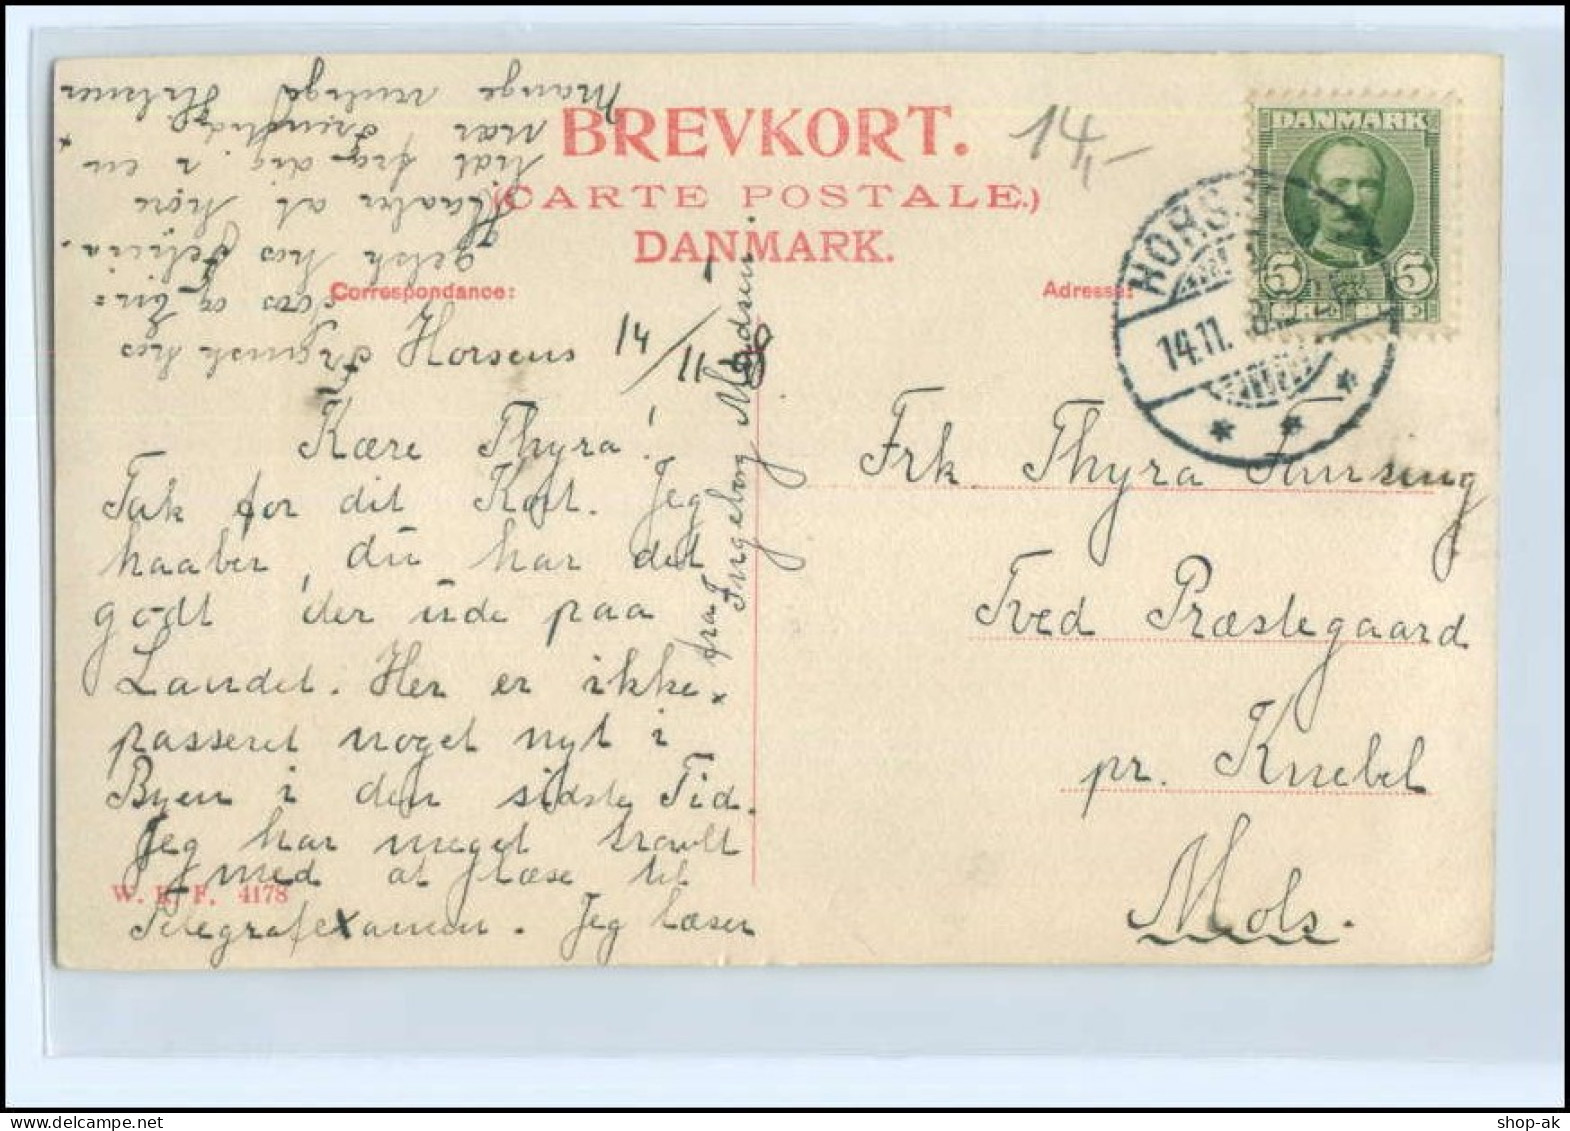 BREVKORT.
(CARTE POSTALE.)
DANMARK.
Correspondance:
Adresse:
14,-
DANMARK
5 5
HORS
14.11.
Horsens 14/11 08
Kære Thyra!
Tak for dit Kort. Jeg
haaber, du har det
godt der ude paa
Landet. Her er ikke
passeret noget nyt i
Byen i den sidste Tid.
Jeg har meget travlt
med at læse til
Telegrafexamen. Jeg læser
hos
og
hos Felicia.
Haaber at høre
lidt fra dig i en
nær Fremtid.
Mange venlige Hilsner
fra Ingeborg Madsen
Frk. Thyra
Tved Præstegaard
pr. Knebel
Mols.
W. K. F. 4178
shop-ak